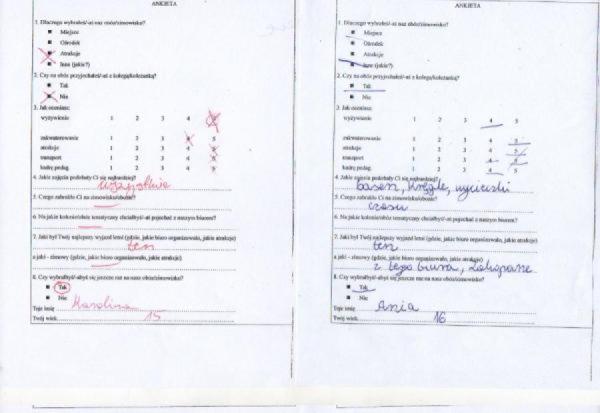 ANKIETA
1. Dlaczego wybrałeś/-aś nasz obóz/zimowisko?
Miejsce
Ośrodek
Atrakcje
Inne (jakie?)
2. Czy na obóz przyjechałeś/-aś z kolegą/koleżanką?
Tak
Nie
3. Jak oceniasz:
wyżywienie 1 2 3 4 5
zakwaterowanie 1 2 3 4 5
atrakcje 1 2 3 4 5
transport 1 2 3 4 5
kadrę pedag. 1 2 3 4 5
4. Jakie zajęcia podobały Ci się najbardziej?
wszystkie
5. Czego zabrakło Ci na zimowisku/obozie?
6. Na jakie kolonie/obóz tematyczny chciałbyś/-aś pojechać z naszym biurem?
7. Jaki był Twój najlepszy wyjazd letni (gdzie, jakie biuro organizowało, jakie atrakcje)
ten
a jaki - zimowy (gdzie, jakie biuro organizowało, jakie atrakcje).
8. Czy wybrałbyś/-abyś się jeszcze raz na nasz obóz/zimowisko?
Tak
Nie
Twoje imię Karolina
Twój wiek 15
ANKIETA
1. Dlaczego wybrałeś/-aś nasz obóz/zimowisko?
Miejsce
Ośrodek
Atrakcje
Inne (jakie?)
2. Czy na obóz przyjechałeś/-aś z kolegą/koleżanką?
Tak
Nie
3. Jak oceniasz:
wyżywienie 1 2 3 4 5
zakwaterowanie 1 2 3 4 5
atrakcje 1 2 3 4 5
transport 1 2 3 4 5
kadrę pedag. 1 2 3 4 5
4. Jakie zajęcia podobały Ci się najbardziej?
basen, kręgle, wycieczki
5. Czego zabrakło Ci na zimowisku/obozie?
czasu
6. Na jakie kolonie/obóz tematyczny chciałbyś/-aś pojechać z naszym biurem?
7. Jaki był Twój najlepszy wyjazd letni (gdzie, jakie biuro organizowało, jakie atrakcje)
ten
a jaki - zimowy (gdzie, jakie biuro organizowało, jakie atrakcje).
z tego biura, Zakopane
8. Czy wybrałbyś/-abyś się jeszcze raz na nasz obóz/zimowisko?
Tak
Nie
Twoje imię Ania
Twój wiek 16